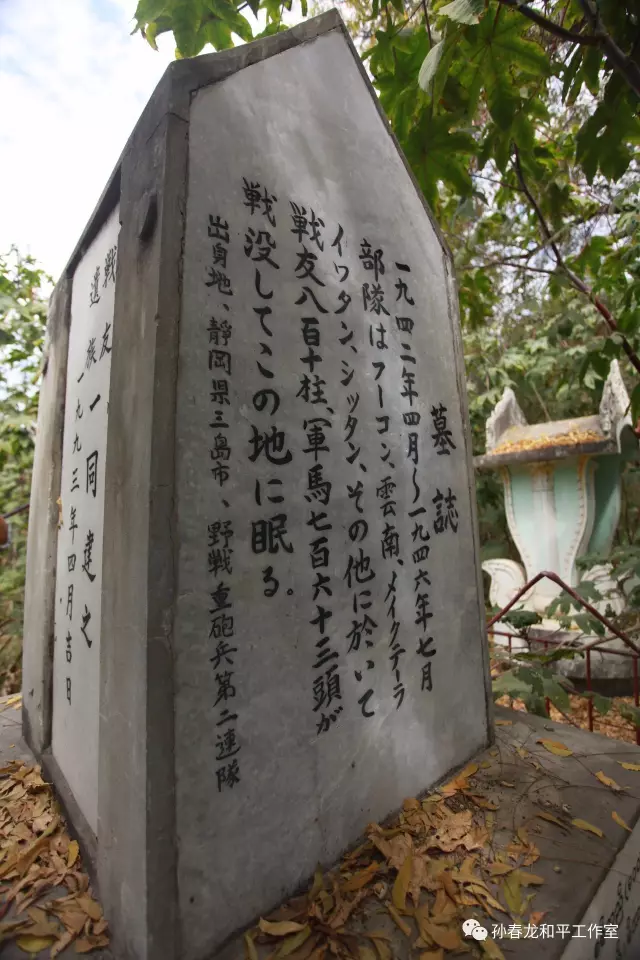 墓誌
一九四二年四月〜一九四六年七月
部隊はフーコン、雲南、メイクテーラ
イワタン、シッタン、その他に於いて
戦友八百十柱、軍馬七百六十三頭が
戦没してこの地に眠る。
出身地、静岡県三島市、野戦重砲兵第二連隊
戦友
遺族一同建之
一九九三年四月吉日
孙春龙和平工作室